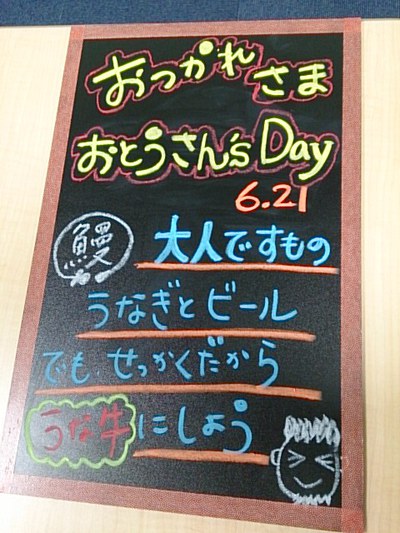 おつかれさま
おとうさん's Day
6.21
鰻 大人ですもの
うなぎとビール
でも せっかくだから
うな牛にしよう